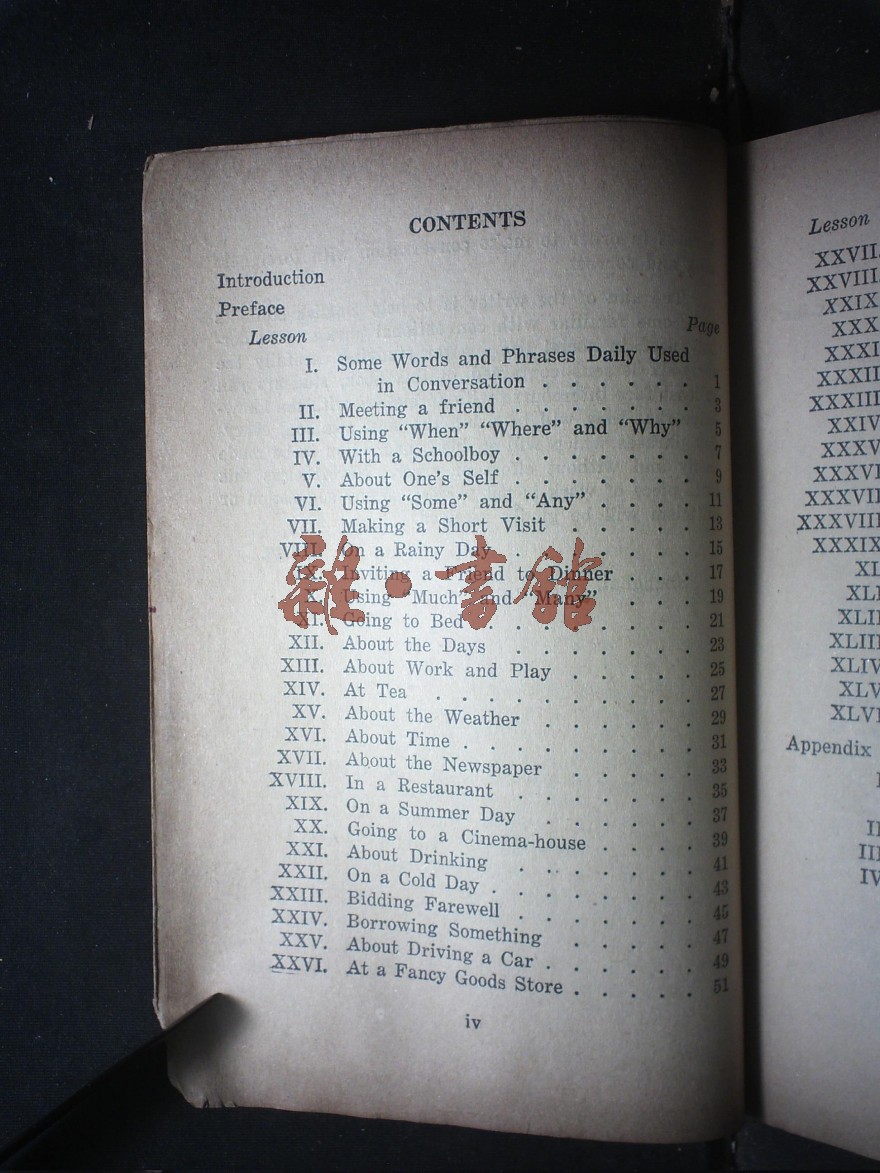 CONTENTS
Introduction
Preface
Lesson Page
I. Some Words and Phrases Daily Used
in Conversation . . . . . . 1
II. Meeting a friend . . . . . . . 3
III. Using “When” “Where” and “Why” 5
IV. With a Schoolboy . . . . . . . 7
V. About One's Self . . . . . . . 9
VI. Using “Some” and “Any” . . . . 11
VII. Making a Short Visit . . . . . 13
VIII. On a Rainy Day . . . . . . . 15
IX. Inviting a Friend to Dinner . . . 17
X. Using “Much” and “Many” . . . 19
XI. Going to Bed . . . . . . . . 21
XII. About the Days . . . . . . . 23
XIII. About Work and Play . . . . . 25
XIV. At Tea . . . . . . . . . . 27
XV. About the Weather . . . . . . 29
XVI. About Time . . . . . . . . . 31
XVII. About the Newspaper . . . . . 33
XVIII. In a Restaurant . . . . . . . 35
XIX. On a Summer Day . . . . . . 37
XX. Going to a Cinema-house . . . . 39
XXI. About Drinking . . . . . . . 41
XXII. On a Cold Day . . . . . . . . 43
XXIII. Bidding Farewell . . . . . . . 45
XXIV. Borrowing Something . . . . . 47
XXV. About Driving a Car . . . . . . 49
XXVI. At a Fancy Goods Store . . . . . 51
iv
雜·書館
Lesson
XXVII.
XXVIII
XXIX
XXX
XXXI
XXXII
XXXIII
XXIV
XXXV
XXXVI
XXXVII
XXXVIII
XXXIX
XL
XLI
XLII
XLIII
XLIV
XLV
XLVI
Appendix
II
III
IV